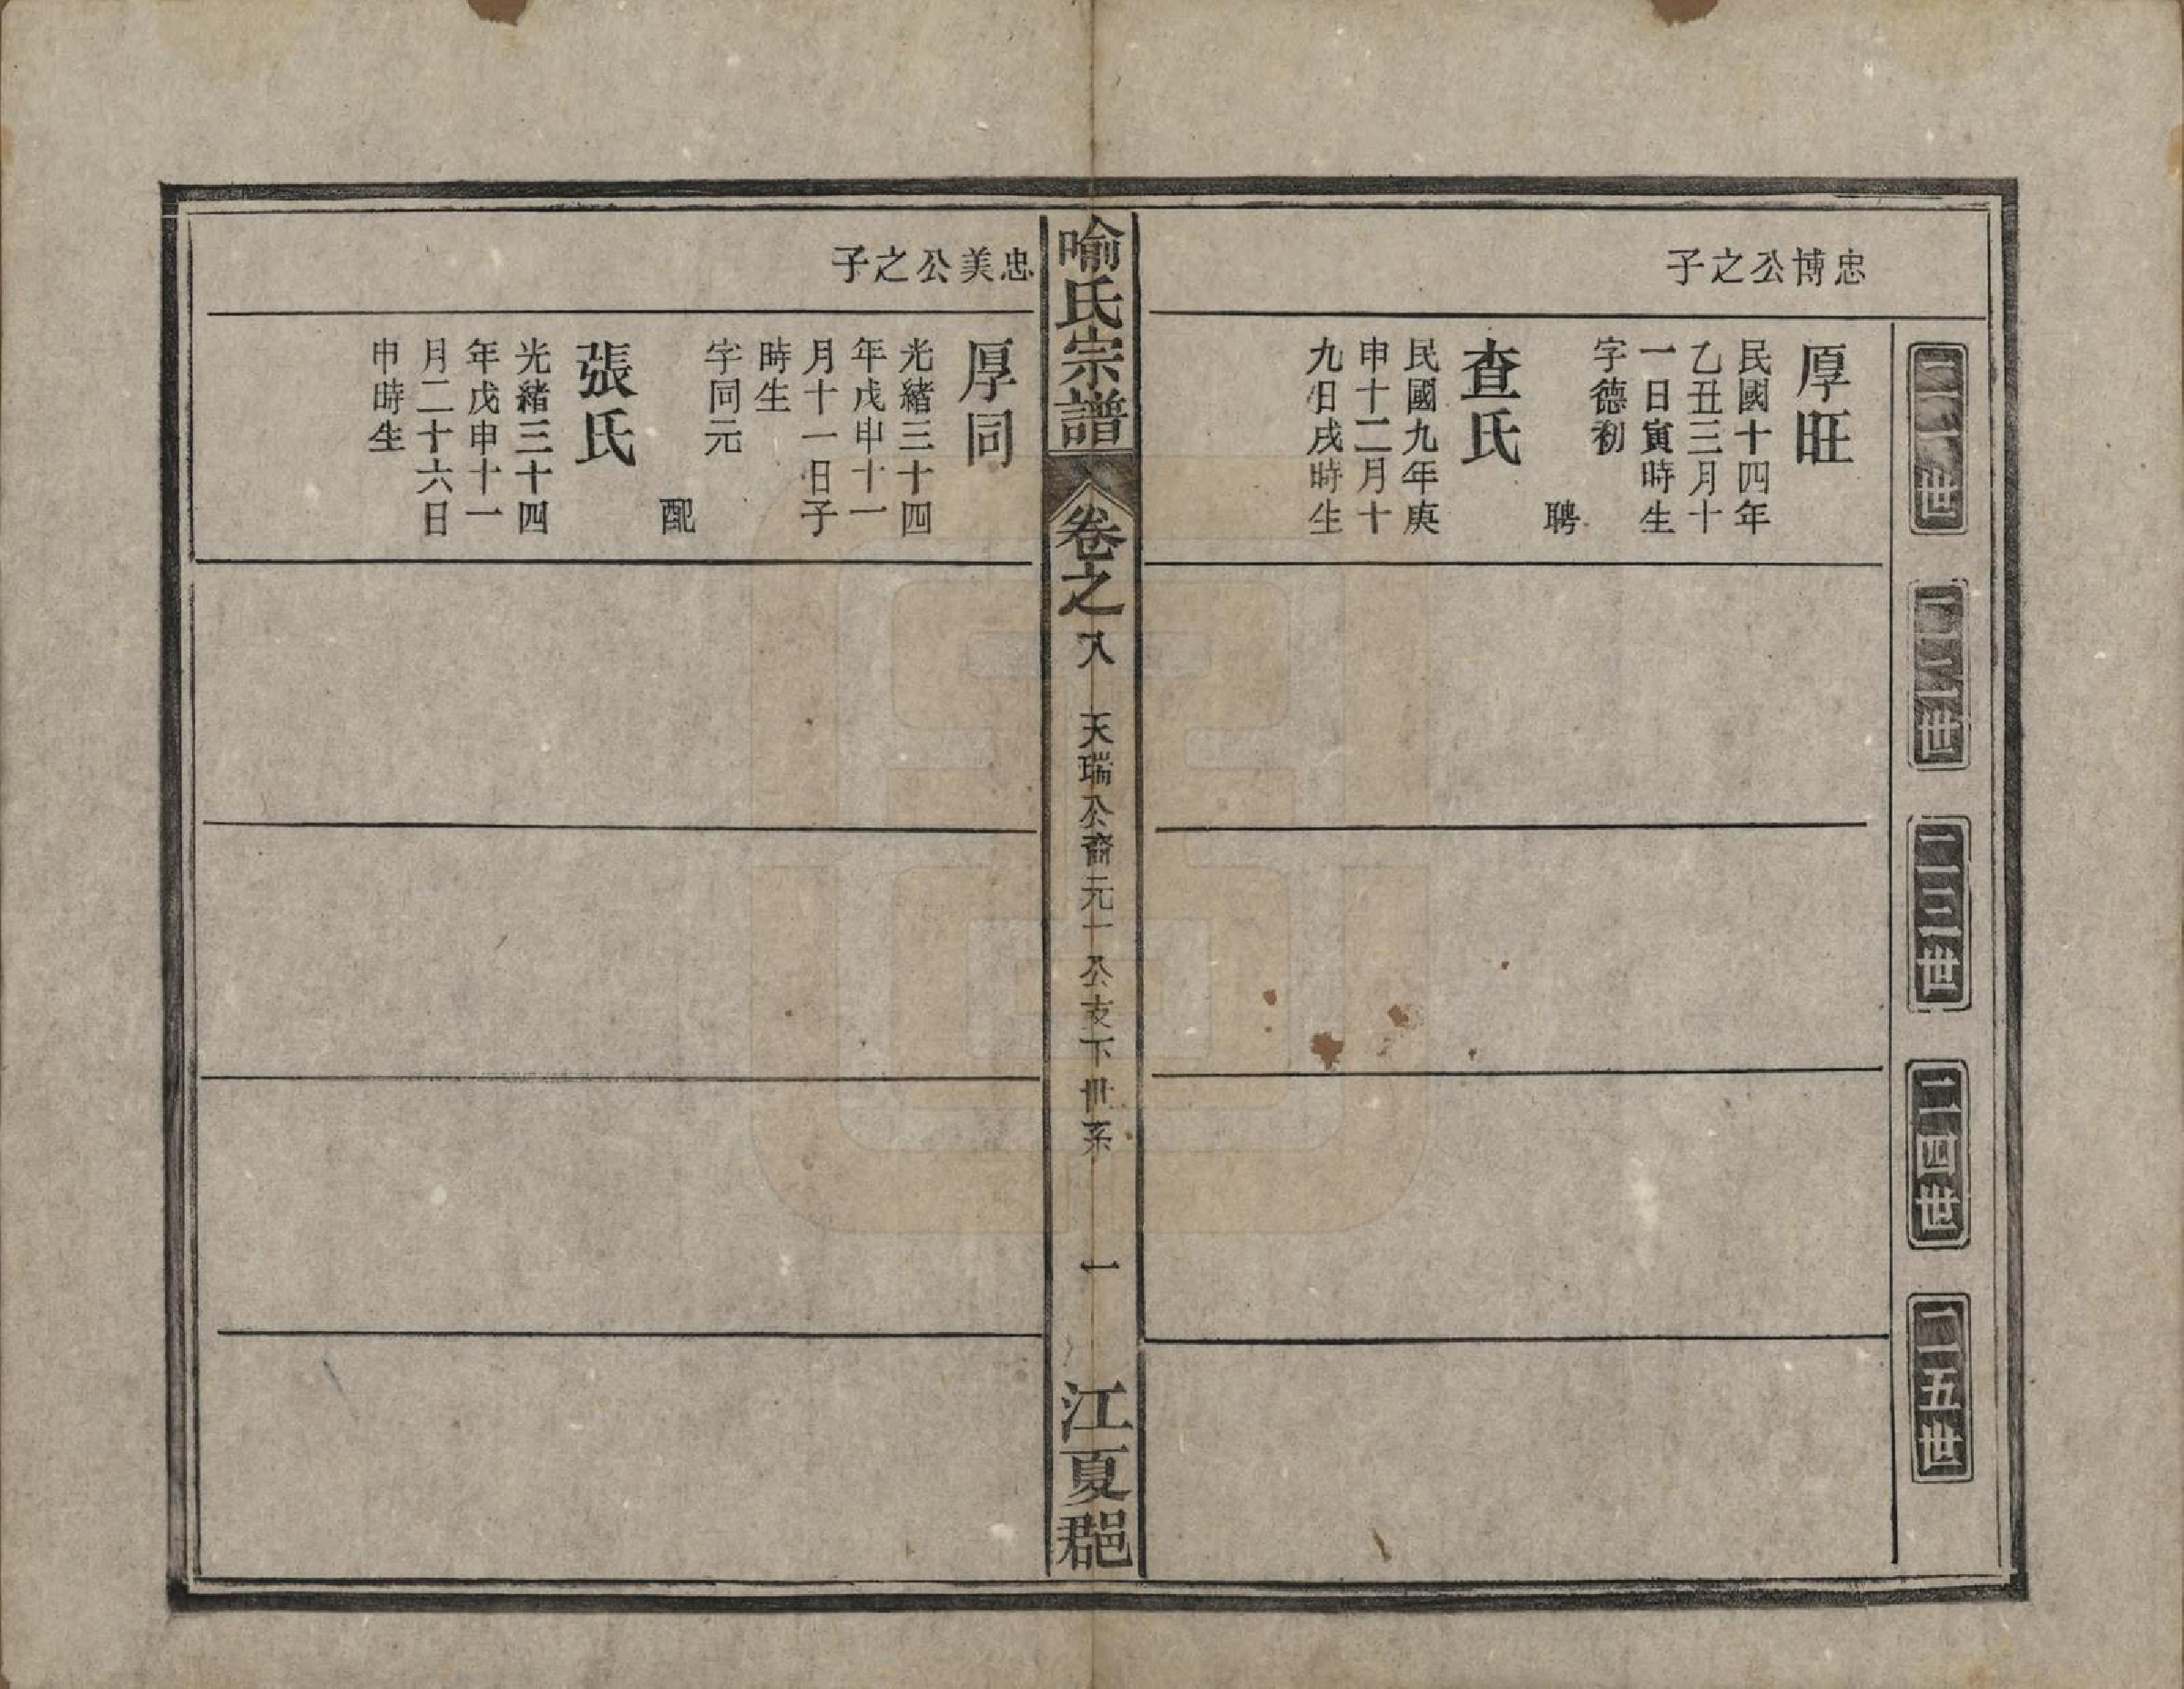 二一世
二二世
二三世
二四世
二五世
忠博公之子
厚旺
民國十四年
乙丑三月十
一日寅時生
字德初
聘
查氏
民國九年庚
申十二月十
九日戌時生
喻氏宗譜
卷之八
天瑞公裔元十公支下世系
一
江夏郡
忠美公之子
厚同
光緒三十四
年戊申十一
月十一日子
時生
字同元
配
張氏
光緒三十四
年戊申十一
月二十六日
申時生